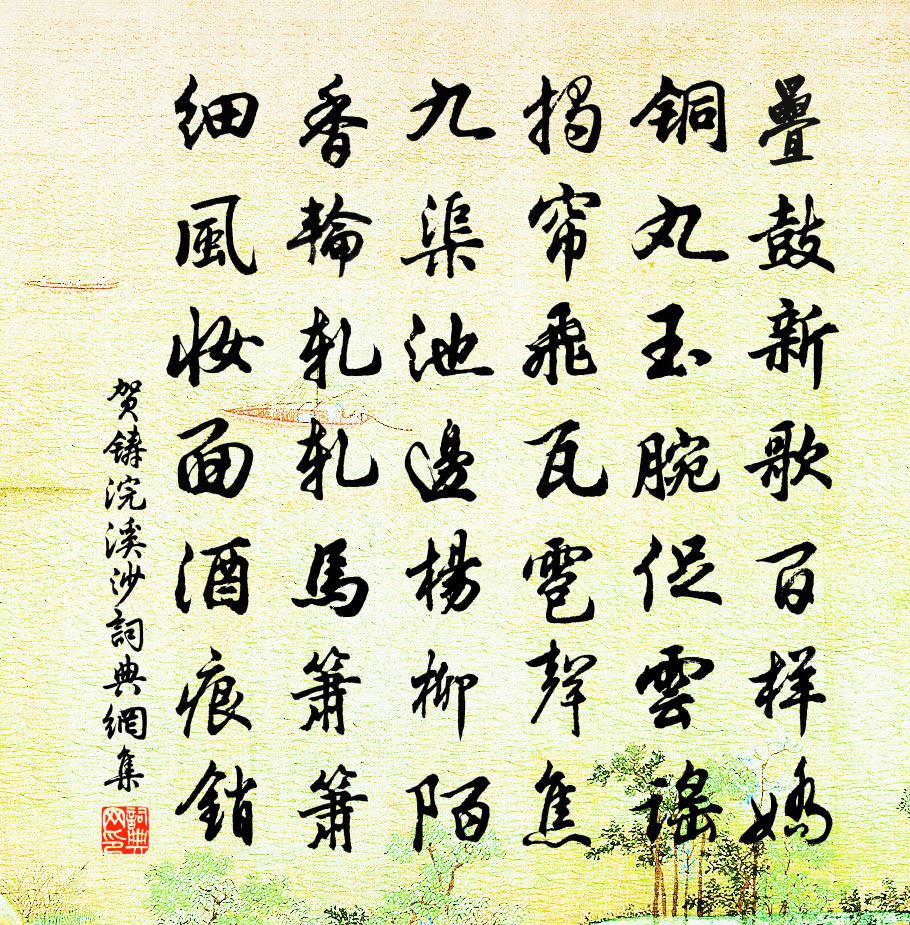 疊鼓新歌百样嬌
銅丸玉腕促雲謠
揭帘飛瓦雹聲焦
九渠池邊楊柳陌
香輪軋軋馬簫簫
細風妝面酒痕銷
賀鑄浣溪沙詞典網集
詞典网印